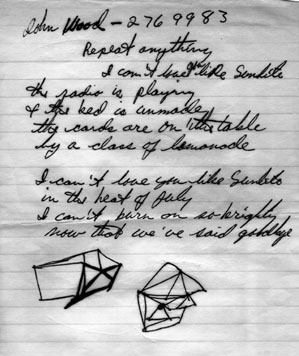 John Wood - 276 9983
Repeat anything
I can't love like Sunkits
the radio is playing
& the bed is unmade
the cards are on the table
by a class of lemonade
I can't love you like Sunkits
in the heat of July
I can't burn on so brightly
now that we've said goodbye